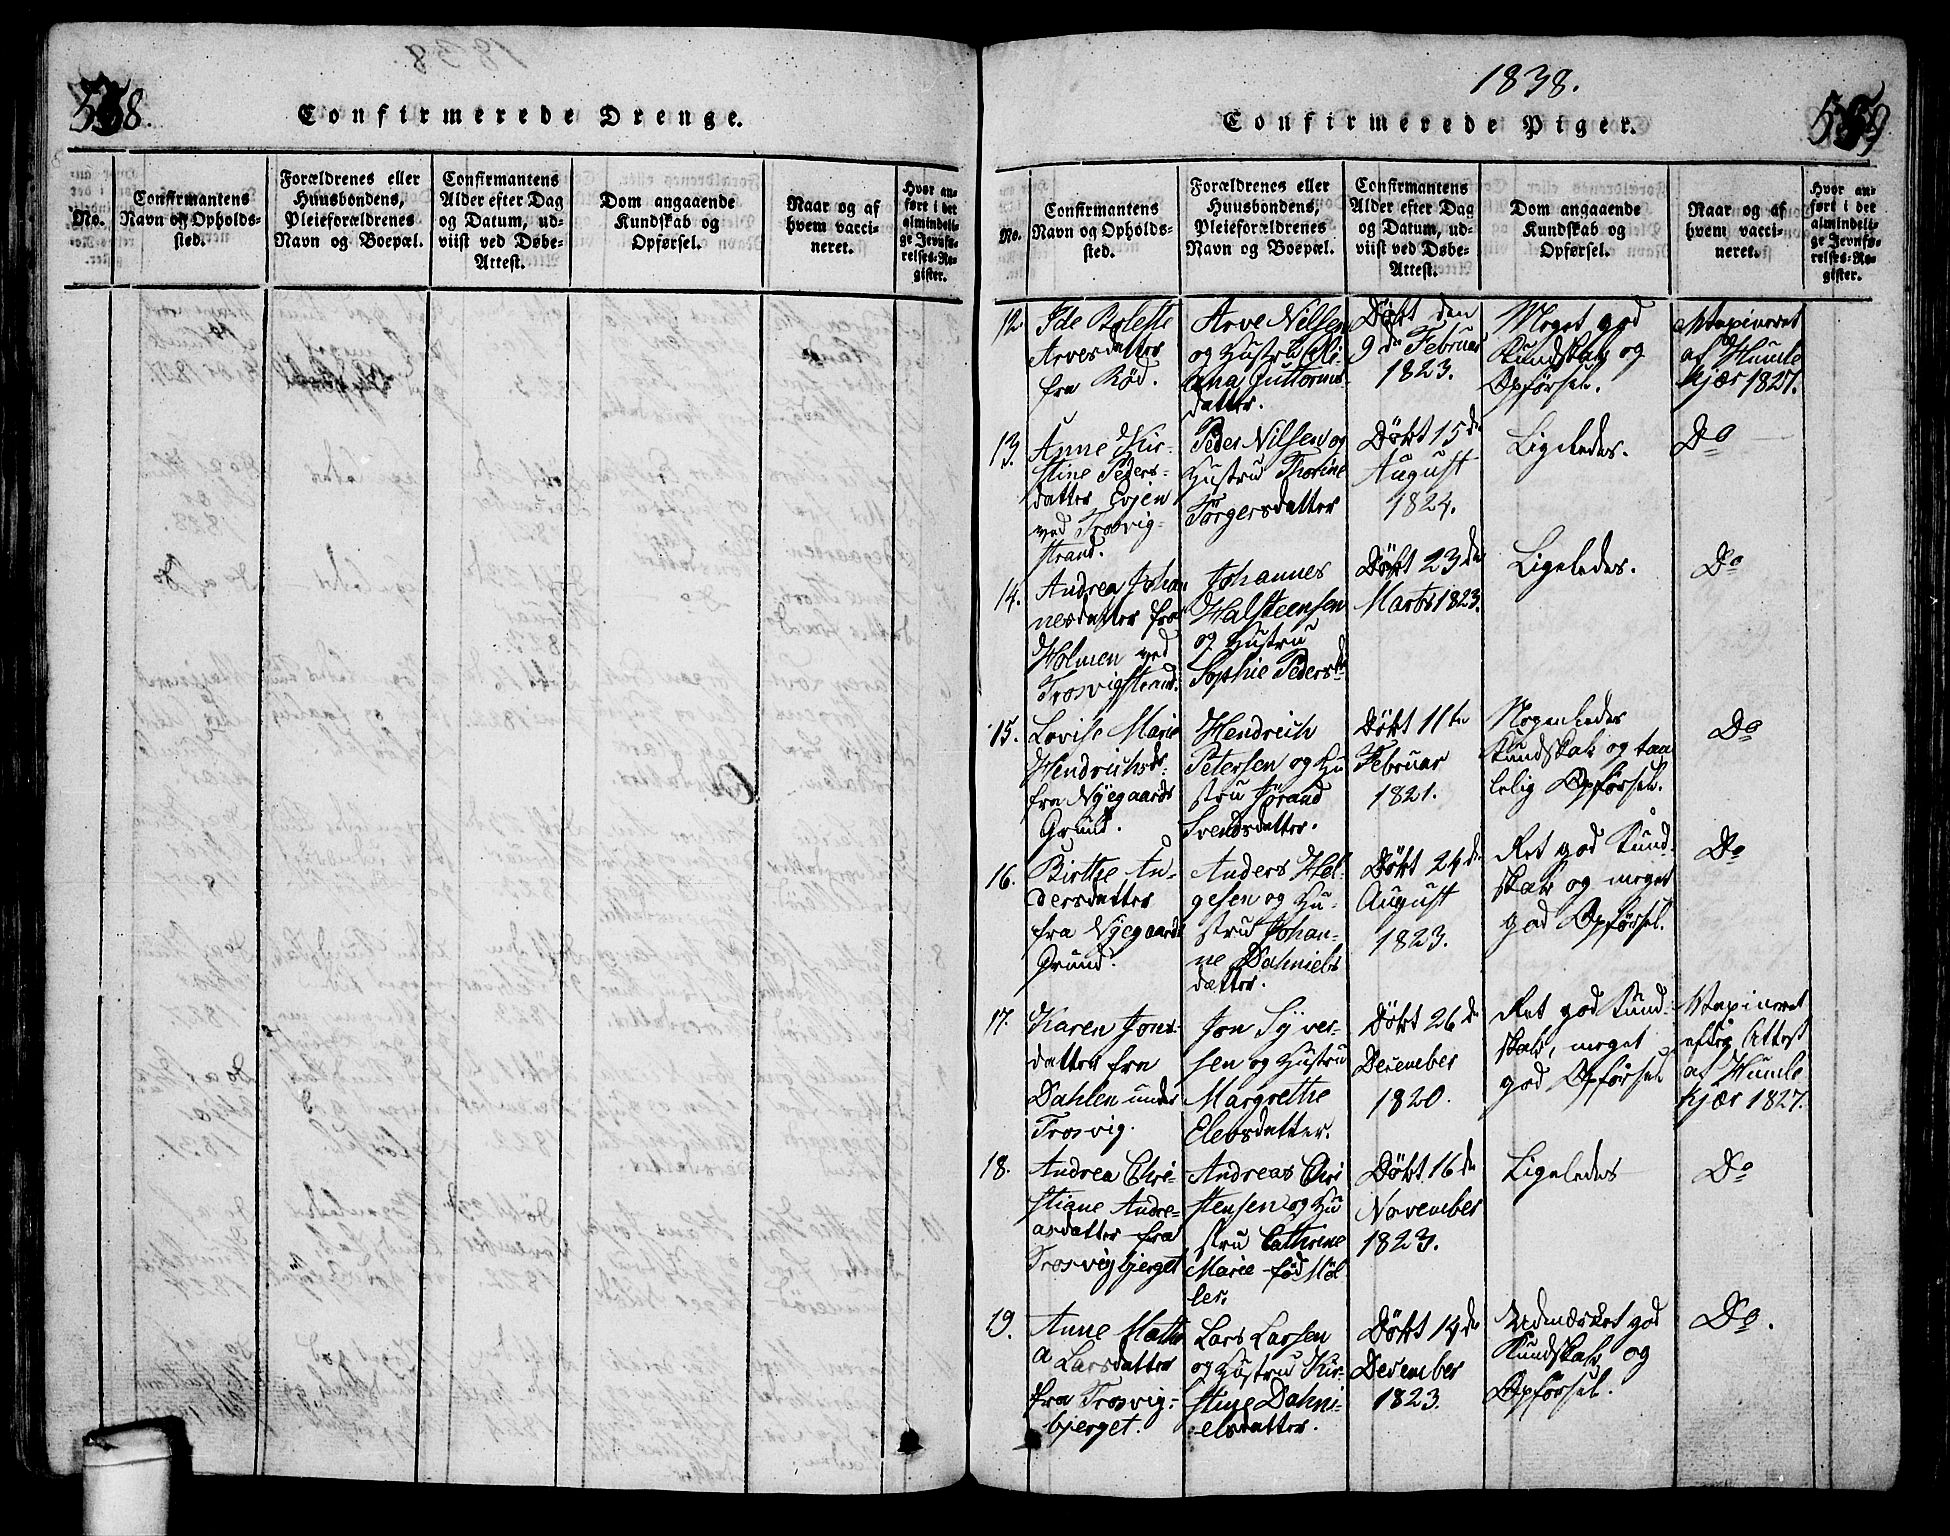 558.
Confirmerede Drenge.
No.
Confirmantens
Navn og Opholds-
sted.
Forældrenes eller
Huusbondens,
Pleieforældrenes
Navn og Boepæl.
Confirmantens
Alder efter Dag
og Datum, ud-
viist ved Døbe-
Attest.
Dom angaaende
Kundskab og
Opførsel.
Naar og af
hvem vacci-
neret.
Hvor an-
ført i det
almindeli-
ge Jevnfø-
relses-Re-
gister.
1838.
559
Confirmerede Piger.
No.
Confirmantens
Navn og Opholds-
sted.
Forældrenes eller
Huusbondens,
Pleieforældrenes
Navn og Boepæl.
Confirmantens
Alder efter Dag
og Datum, ud-
viist ved Døbe-
Attest.
Dom angaaende
Kundskab og
Opførsel.
Naar og af
hvem vacci-
neret.
Hvor an-
ført i det
almindeli-
ge Jevnfø-
relses-Re-
gister.
12
Ide Bolette
Arvesdatter
fra Röd.
Arve Nilsen
og Hustru
Guttorms-
datter.
Döbt den
9de Februar
1823.
Meget god
Kundskab og
Opførsel.
af Humle
kjær 1827.
13.
Anne Kir-
stine Peders-
datter Evjen
ved Trosvig-
strand.
Peder Nilsen og
Hustru Thorine
Törgersdatter
Döbt 15de
August
1824.
Ligeledes.
Do
14.
Andrea Johan
nesdatter fra
Holmen ved
Trosvigstrand.
Johannes
Halsteensen
og Hustru
Sophie Pedersd
Döbt 23de
Marts 1823.
Ligeledes.
Do
15.
Lovise Marie
Hendrichsd.
fra Nyegaards
Grund.
Hendrich
Petersen og Hu
stru Jörand
Svendsdatter.
Döbt 11te
Februar
1821.
Nogenledes
Kundskab og taa
lelig Opførsel.
Do
16.
Birthe An-
dersdatter
fra Nyegaards
Grund.
Anders Hel-
gesen og Hu-
stru Johan-
ne Dahniels
datter.
Döbt 24de
August
1823.
Ret god Kund-
skab og meget
god Opførsel.
Do
17.
Karen Jons-
datter fra
Dahlen under
Trosvig.
Jon Syver-
sen og Hustru
Margrethe
Elevsdatter.
Döbt 26de
December
1820.
Ret god Kund-
skab, meget
god Opførsel
Attest
af Humle
kjær 1827.
18.
Andrea Chri-
stiane Andre-
asdatter fra
Trosvigbjerget
Andreas Chri
stensen og Hu
stru Cathrine
Marie fød Möl-
ler.
Döbt 16de
November
1823.
Ligeledes
Do
19.
Anne Math
a Larsdatter
fra Trosvig-
bjerget.
Lars Larsen
og Hustru Kir-
stine Dahni-
elsdatter.
Döbt 14de
December
1823.
Udmærket god
Kundskab og
Opførsel.
Do.